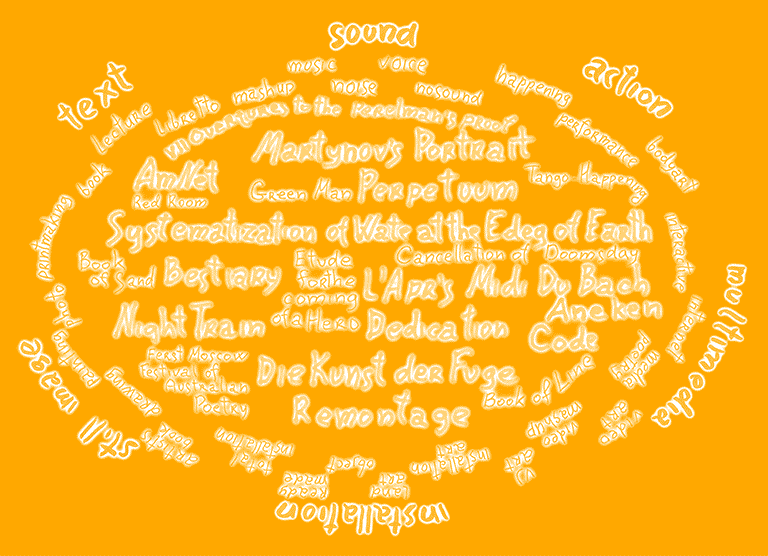 sound
music voice
action
text
mashup noise nosound happening
lecture libretto
VII Overtures to the perelman's proof
performance
Martynov's Portrait
bodyart
book
Tango-Happening
Green Man Perpetuum
Red Room
printmaking
Systematization of Wate at the Edeg of Earth
interactive
Cancellation of Doomsday
Book of Sand
Bestiary
Etude for the coming of a Hero
L'Apr's Midi Du Bach
multimedia
photo
internet
Night Train
Dedication
Aneken Code
painting
media poetry
still image
Feast Moscow
Festival of
Australian
Poetry
Die Kunst der Fuge
drawing
Book of Line
Remontage
video art
video mashup
artist's book
total installation
object
installation art
VJ art
ready made
land art
installation